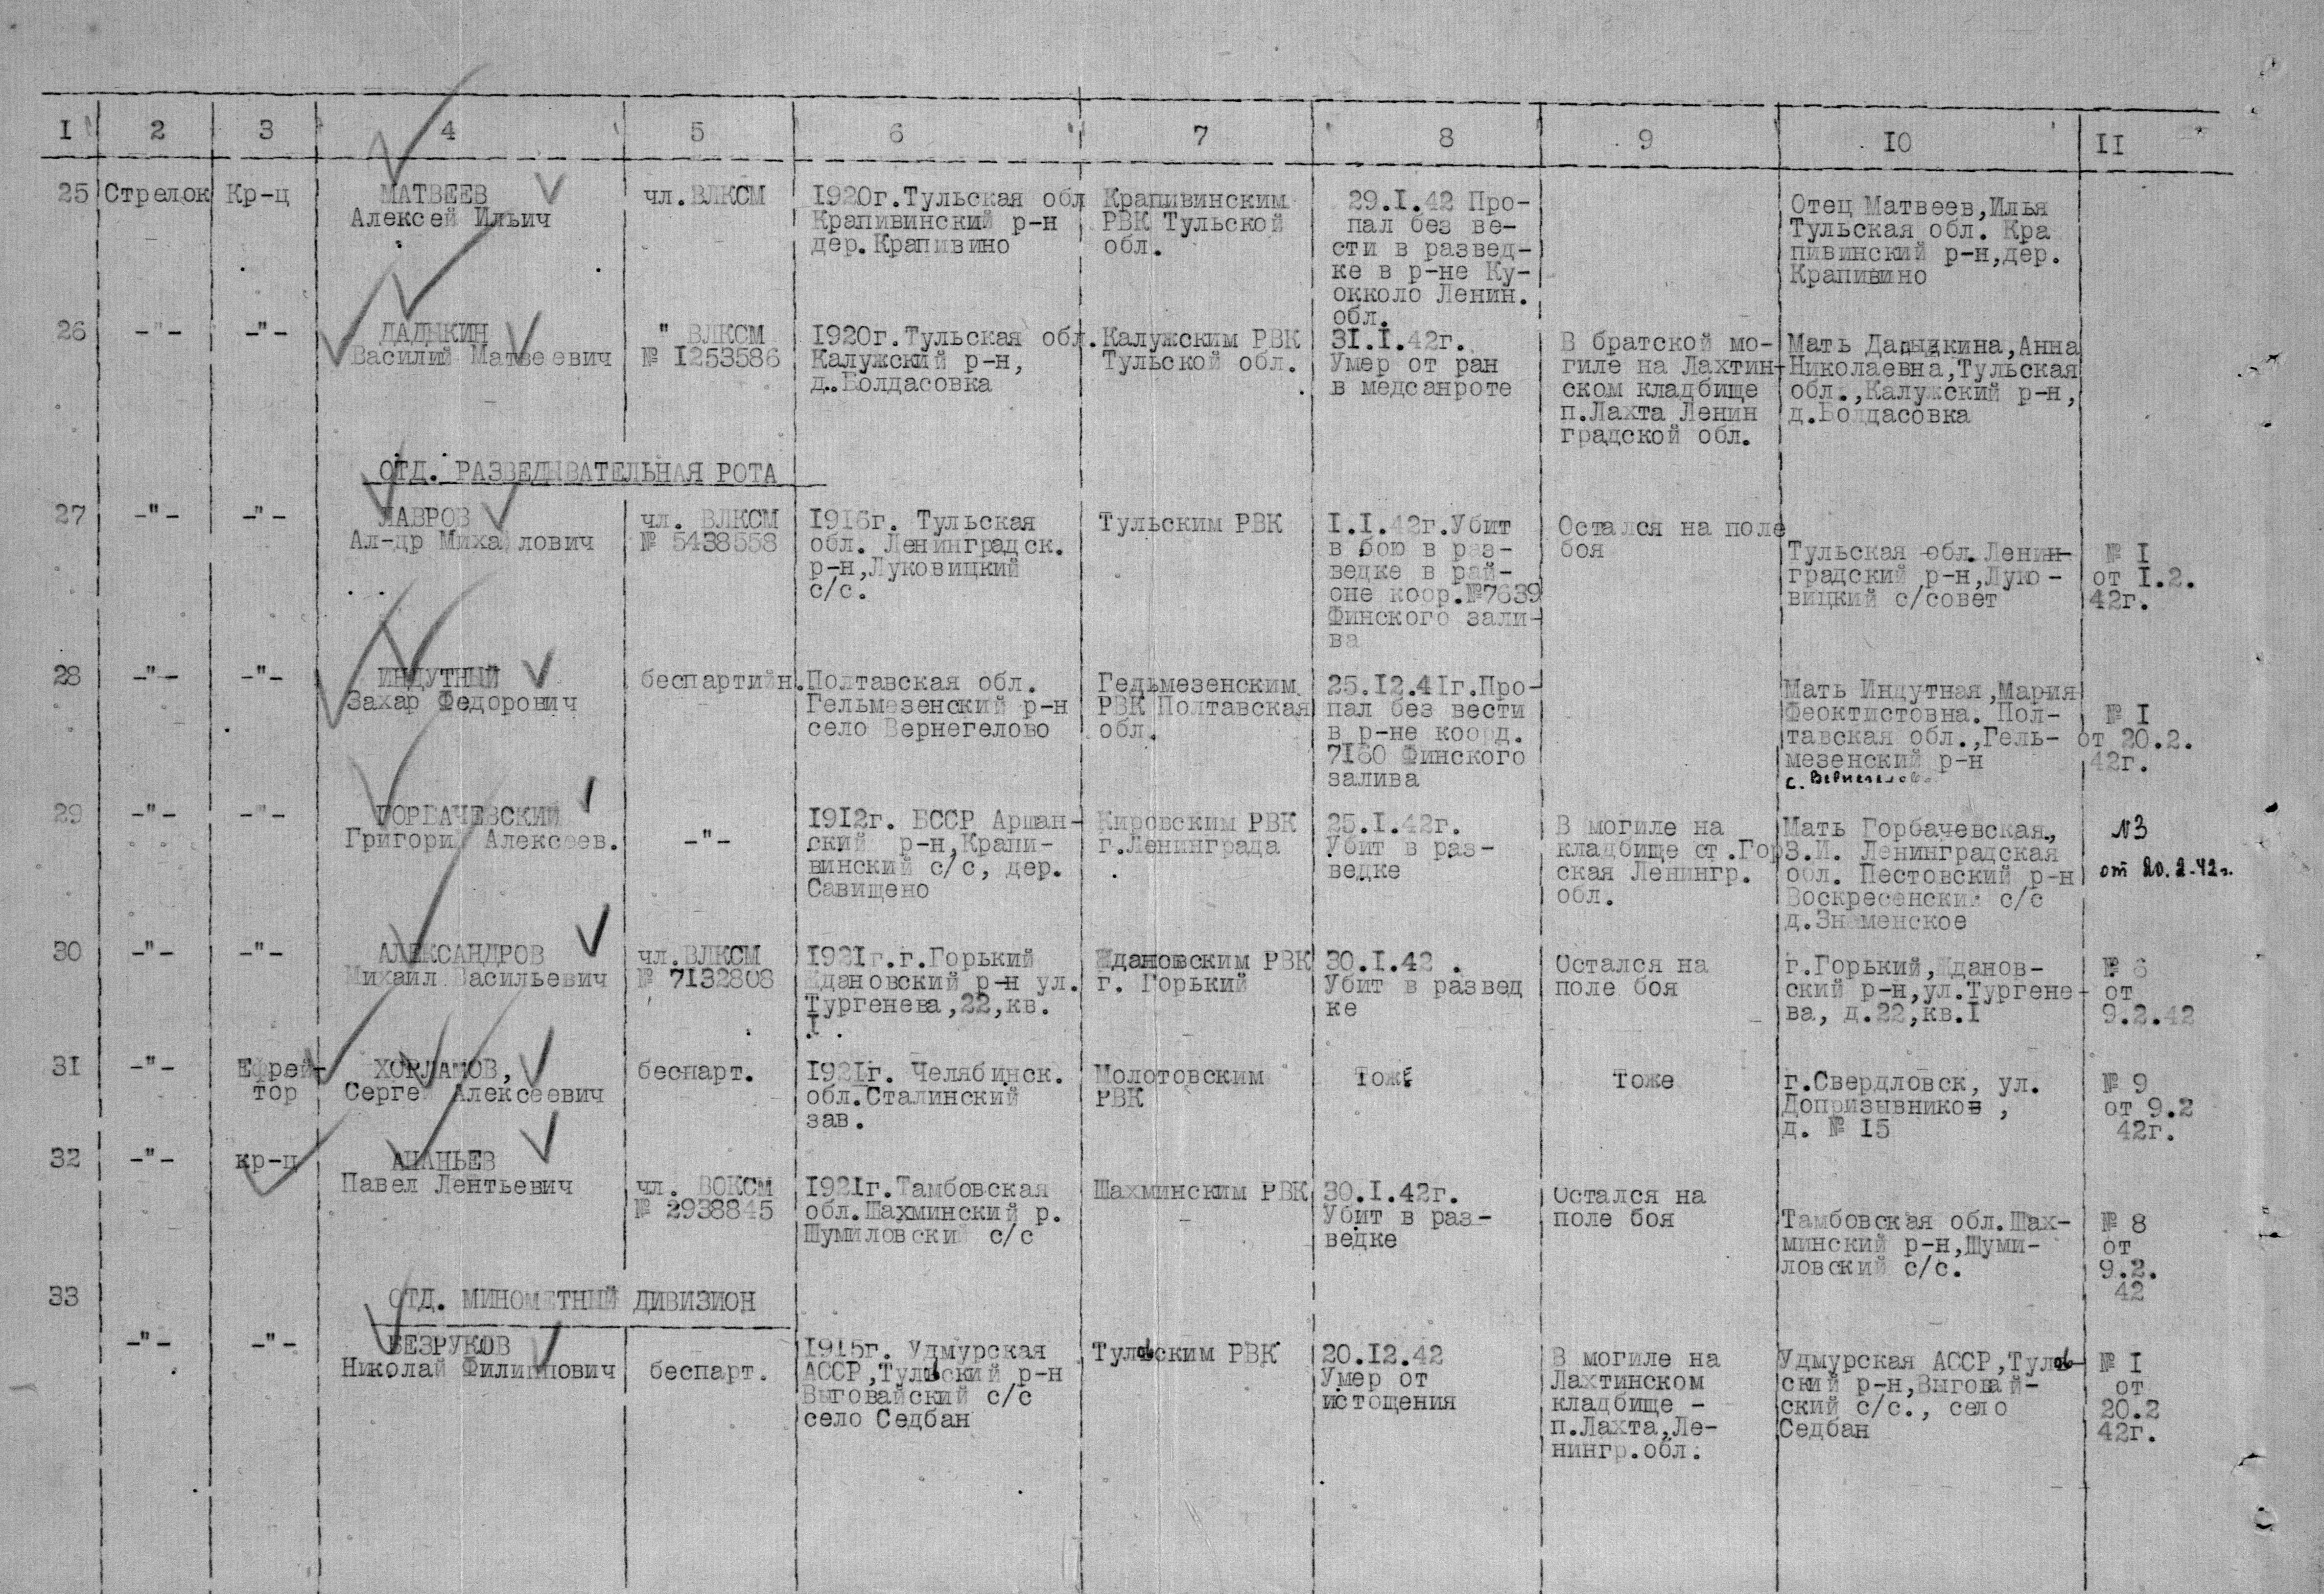 I 2 3 4 5 6 7 8 9 10 II
25 Стрелок Кр-ц
МАТВЕЕВ
Алексей Ильич
чл.ВЛКСМ
1920г.Тульская обл
Крапивинский р-н
дер.Крапивино
Крапивинским
РВК Тульской
обл.
29.I.42 Про-
пал без ве-
сти в развед-
ке в р-не Ку-
окколо Ленин.
обл.
Отец Матвеев,Илья
Тульская обл. Кра
пивинский р-н,дер.
Крапивино
26 -"- -"-
ДАДЫКИН
Василий Матвеевич
" ВЛКСМ
№ 1253586
1920г.Тульская обл.
Калужский р-н,
д..Болдасовка
Калужским РВК
Тульской обл.
31.I.42г.
Умер от ран
в медсанроте
В братской мо-
гиле на Лахтин-
ском кладбище
п.Лахта Ленин
градской обл.
Мать Дадыдкина,Анна
Николаевна,Тульская
обл.,Калужский р-н,
д.Болдасовка
ОТД. РАЗВЕДЫВАТЕЛЬНАЯ РОТА
27 -"- -"-
ЛАВРОВ
Ал-др Михайлович
чл. ВЛКСМ
№ 5438558
1916г. Тульская
обл. Ленинградск.
р-н,Луковицкий
с/с.
Тульским РВК
I.I.42г.Убит
в бою в раз-
ведке в рай-
оне коор.№7639
Финского зали-
ва
Остался на поле
боя
Тульская обл.Ленин-
градский р-н,Луко-
вицкий с/совет
№ I
от I.2.
42г.
28 -"- -"-
ИНДУТНЫЙ
Захар Федорович
беспартийн.
Полтавская обл.
Гельмезенский р-н
село Вернегелово
Гедьмезенским
РВК Полтавская
обл.
25.12.41г.Про-
пал без вести
в р-не коорд.
7160 Финского
залива
Мать Индутная,Мария
Феоктистовна. Пол-
тавская обл.,Гель-
мезенский р-н
с. Вернегелово
№ I
от 20.2.
42г.
29 -"- -"-
ГОРБАЧЕВСКИЙ
Григорий Алексеев.
-"-
1912г. БССР Аршан-
ский р-н,Крапи-
винский с/с, дер.
Савищено
Кировским РВК
г.Ленинграда
25.I.42г.
Убит в раз-
ведке
В могиле на
кладбище ст.Гор
ская Ленингр.
обл.
Мать Горбачевская,
З.И. Ленинградская
обл. Пестовский р-н
Воскресенский с/с
д.Знаменское
№3
от 20.2.42г.
30 -"- -"-
АЛЕКСАНДРОВ
Михаил Васильевич
чл.ВЛКСМ
№ 7132808
1921г.г.Горький
Ждановский р-н ул.
Тургенева,22,кв.
I.
Ждановским РВК
г. Горький
30.I.42 .
Убит в развед
ке
Остался на
поле боя
г.Горький,Жданов-
ский р-н,ул.Тургене-
ва, д.22,кв.I
№ 6
от
9.2.42
31 -"- Ефрей-
тор
ХОРЛАМОВ,
Сергей Алексеевич
беспарт.
1921г. Челябинск.
обл.Сталинский
зав.
Молотовским
РВК
Тоже
Тоже
г.Свердловск, ул.
Допризывников ,
д. № 15
№ 9
от 9.2
42г.
32 -"- кр-ц
АНАНЬЕВ
Павел Лентьевич
чл. ВОКСМ
№ 2938845
1921г.Тамбовская
обл.Шахминский р.
Шумиловский с/с
Шахминским РВК
30.I.42г.
Убит в раз-
ведке
Остался на
поле боя
Тамбовская обл.Шах-
минский р-н,Шуми-
ловский с/с.
№ 8
от
9.2.
42
33
ОТД. МИНОМЕТНЫЙ ДИВИЗИОН
-"- -"-
БЕЗРУКОВ
Николай Филиппович
беспарт.
1915г. Удмурская
АССР,Туловский р-н
Выговайский с/с
село Седбан
Туловским РВК
20.12.42
Умер от
истощения
В могиле на
Лахтинском
кладбище -
п.Лахта,Ле-
нингр.обл.
Удмурская АССР,Тулов-
ский р-н,Выговай-
ский с/с., село
Седбан
№ I
от
20.2
42г.